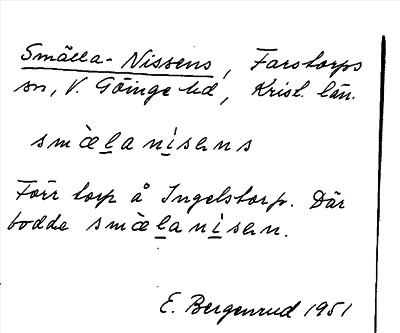 Smälla-Nissens, Farstorps
sn, V. Göinge hd, Krist. län.
smæ̀lanisəns
Förr torp å Ingelstorp. Där
bodde smæ̀lanisən.
E. Bergenrud 1951